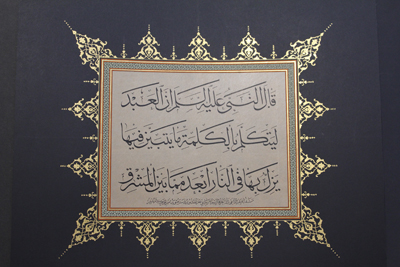 قال النبي عليه السلام ان العبد
ليتكلم بالكلمة ما يتبين فيها
يزل بها في النار ابعد مما بين المشرق